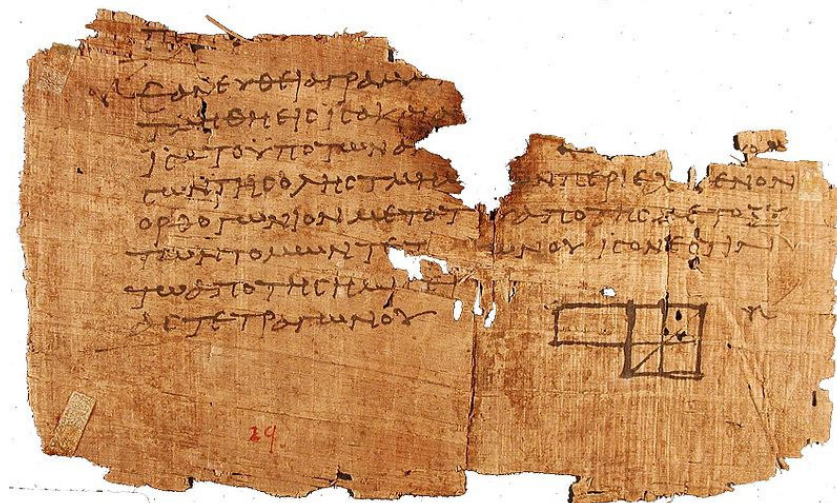 ΕΑΝΕΥΘΕΙΑΓΡΑΜ
ΤΜΗΘΗΕΙϹΙϹΑΚΑΙΑ
ΙϹΑΤΟΥΠΟΤΩΝΑ
ΙϹΩΝΤΗϹΟΛΗϹΤΜΗΜΑ ΩΝΠΕΡΙΕΧΟΜΕΝΟΝ
ΟΡΘΟΓΩΝΙΟΝΜΕΤΑΤ ΥΑΠΟΤΗϹΜΕΤΟΞΥ
ΤΩΝΤΟΜΩΝΤΕΤ ΩΝΟΥΙϹΟΝΕϹΤΙΝ
ΤΩΑΠΟΤΗϹΗΜΙϹΕΙ
ΑϹΤΕΤΡΑΓΩΝΟΥ
29